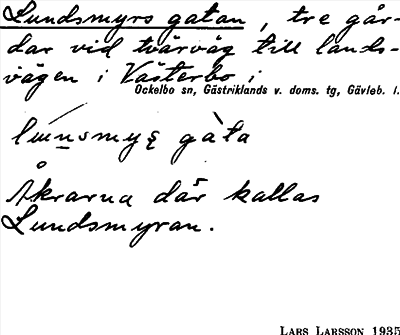 Lundsmyrs gatan, tre går-
dar vid tvärväg till lands-
vägen i Västerbo i
Ockelbo sn, Gästriklands v. doms. tg, Gävleb. l.
gàta
Åkrarna där kallas
Lundsmyran.
LARS LARSSON 1935